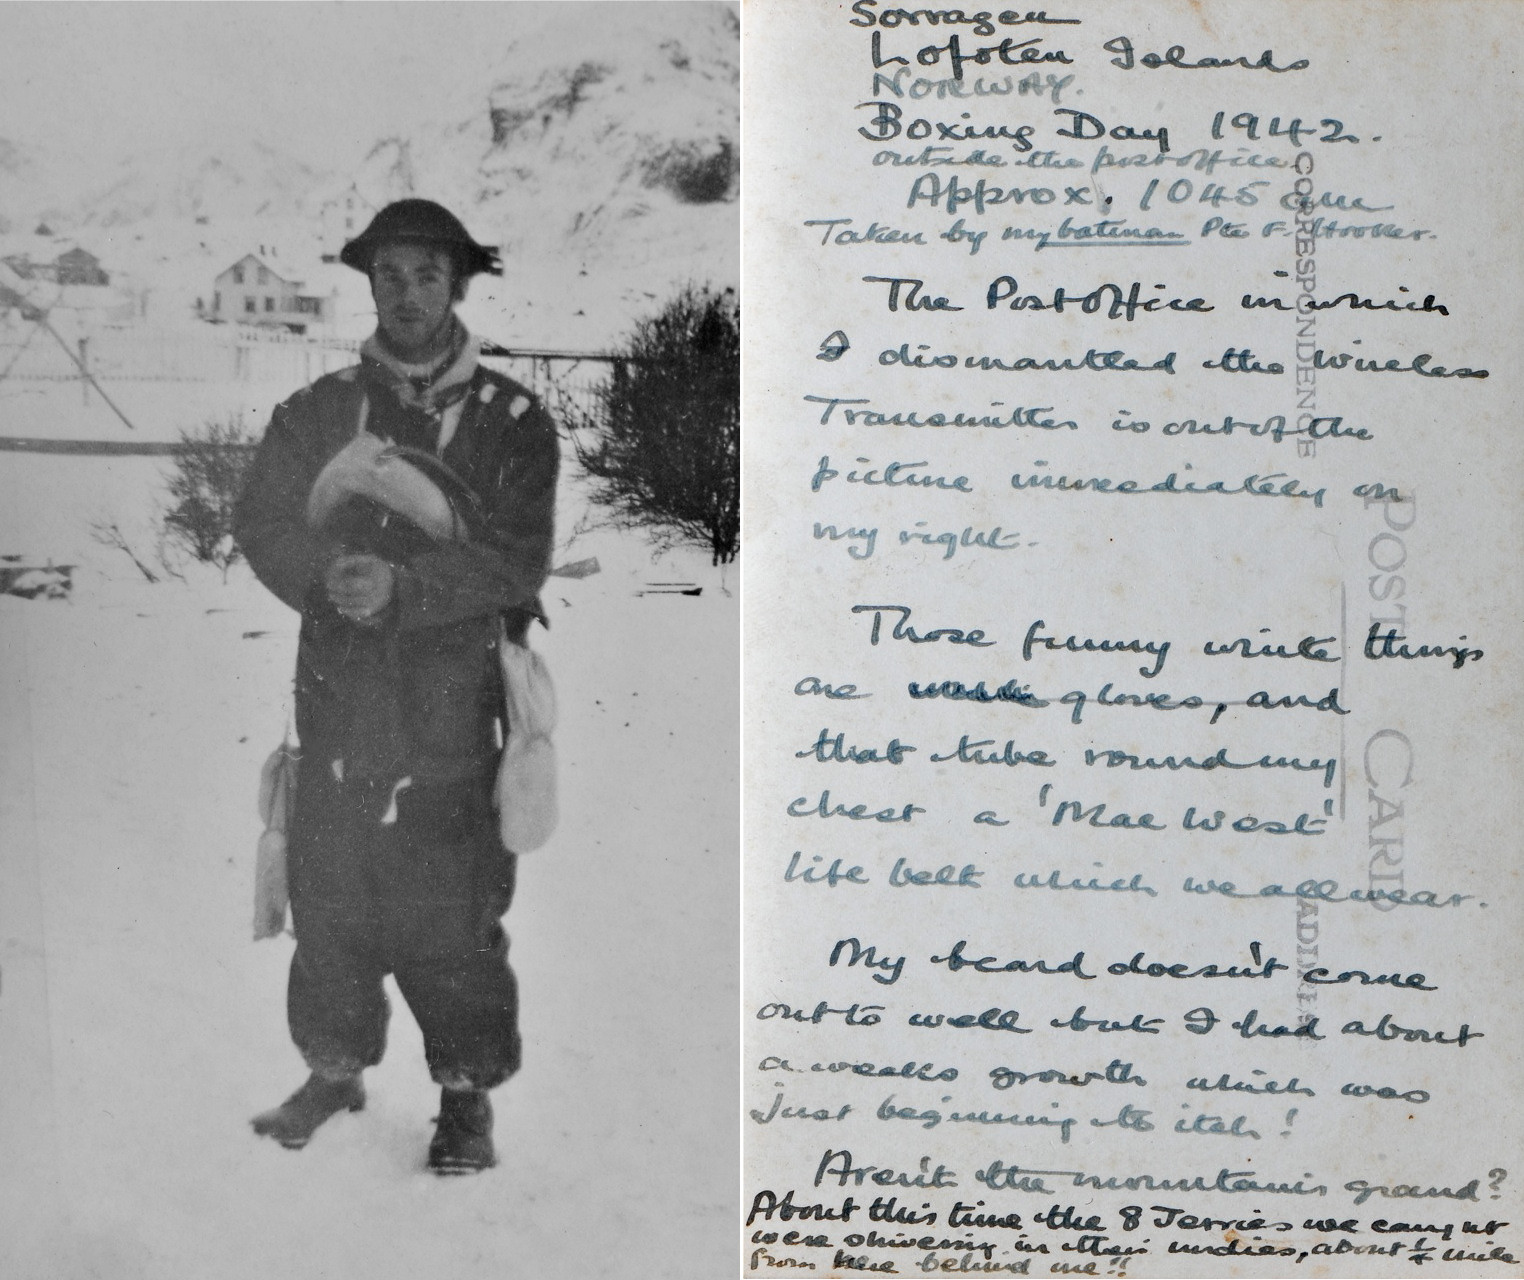 Sorvagen
Lofoten Islands
NORWAY.
Boxing Day 1942.
outside the postoffice.
Approx. 1045 am
Taken by my batman Pte F. Hooker.
The Postoffice in which
I dismantled the wireless
Transmitter is out of the
picture immediately on
my right.
Those funny white things
are gloves, and
that tube round my
chest a 'Mae West'
life belt which we all wear.
My beard doesn't come
out to well but I had about
a weeks growth which was
just beginning to itch!
Aren't the mountains grand?
About this time the 8 Jerries we caught
were shivering in their undies, about ½ mile
from here behind me!!
CORRESPONDENCE
POST CARD
ADDRESS